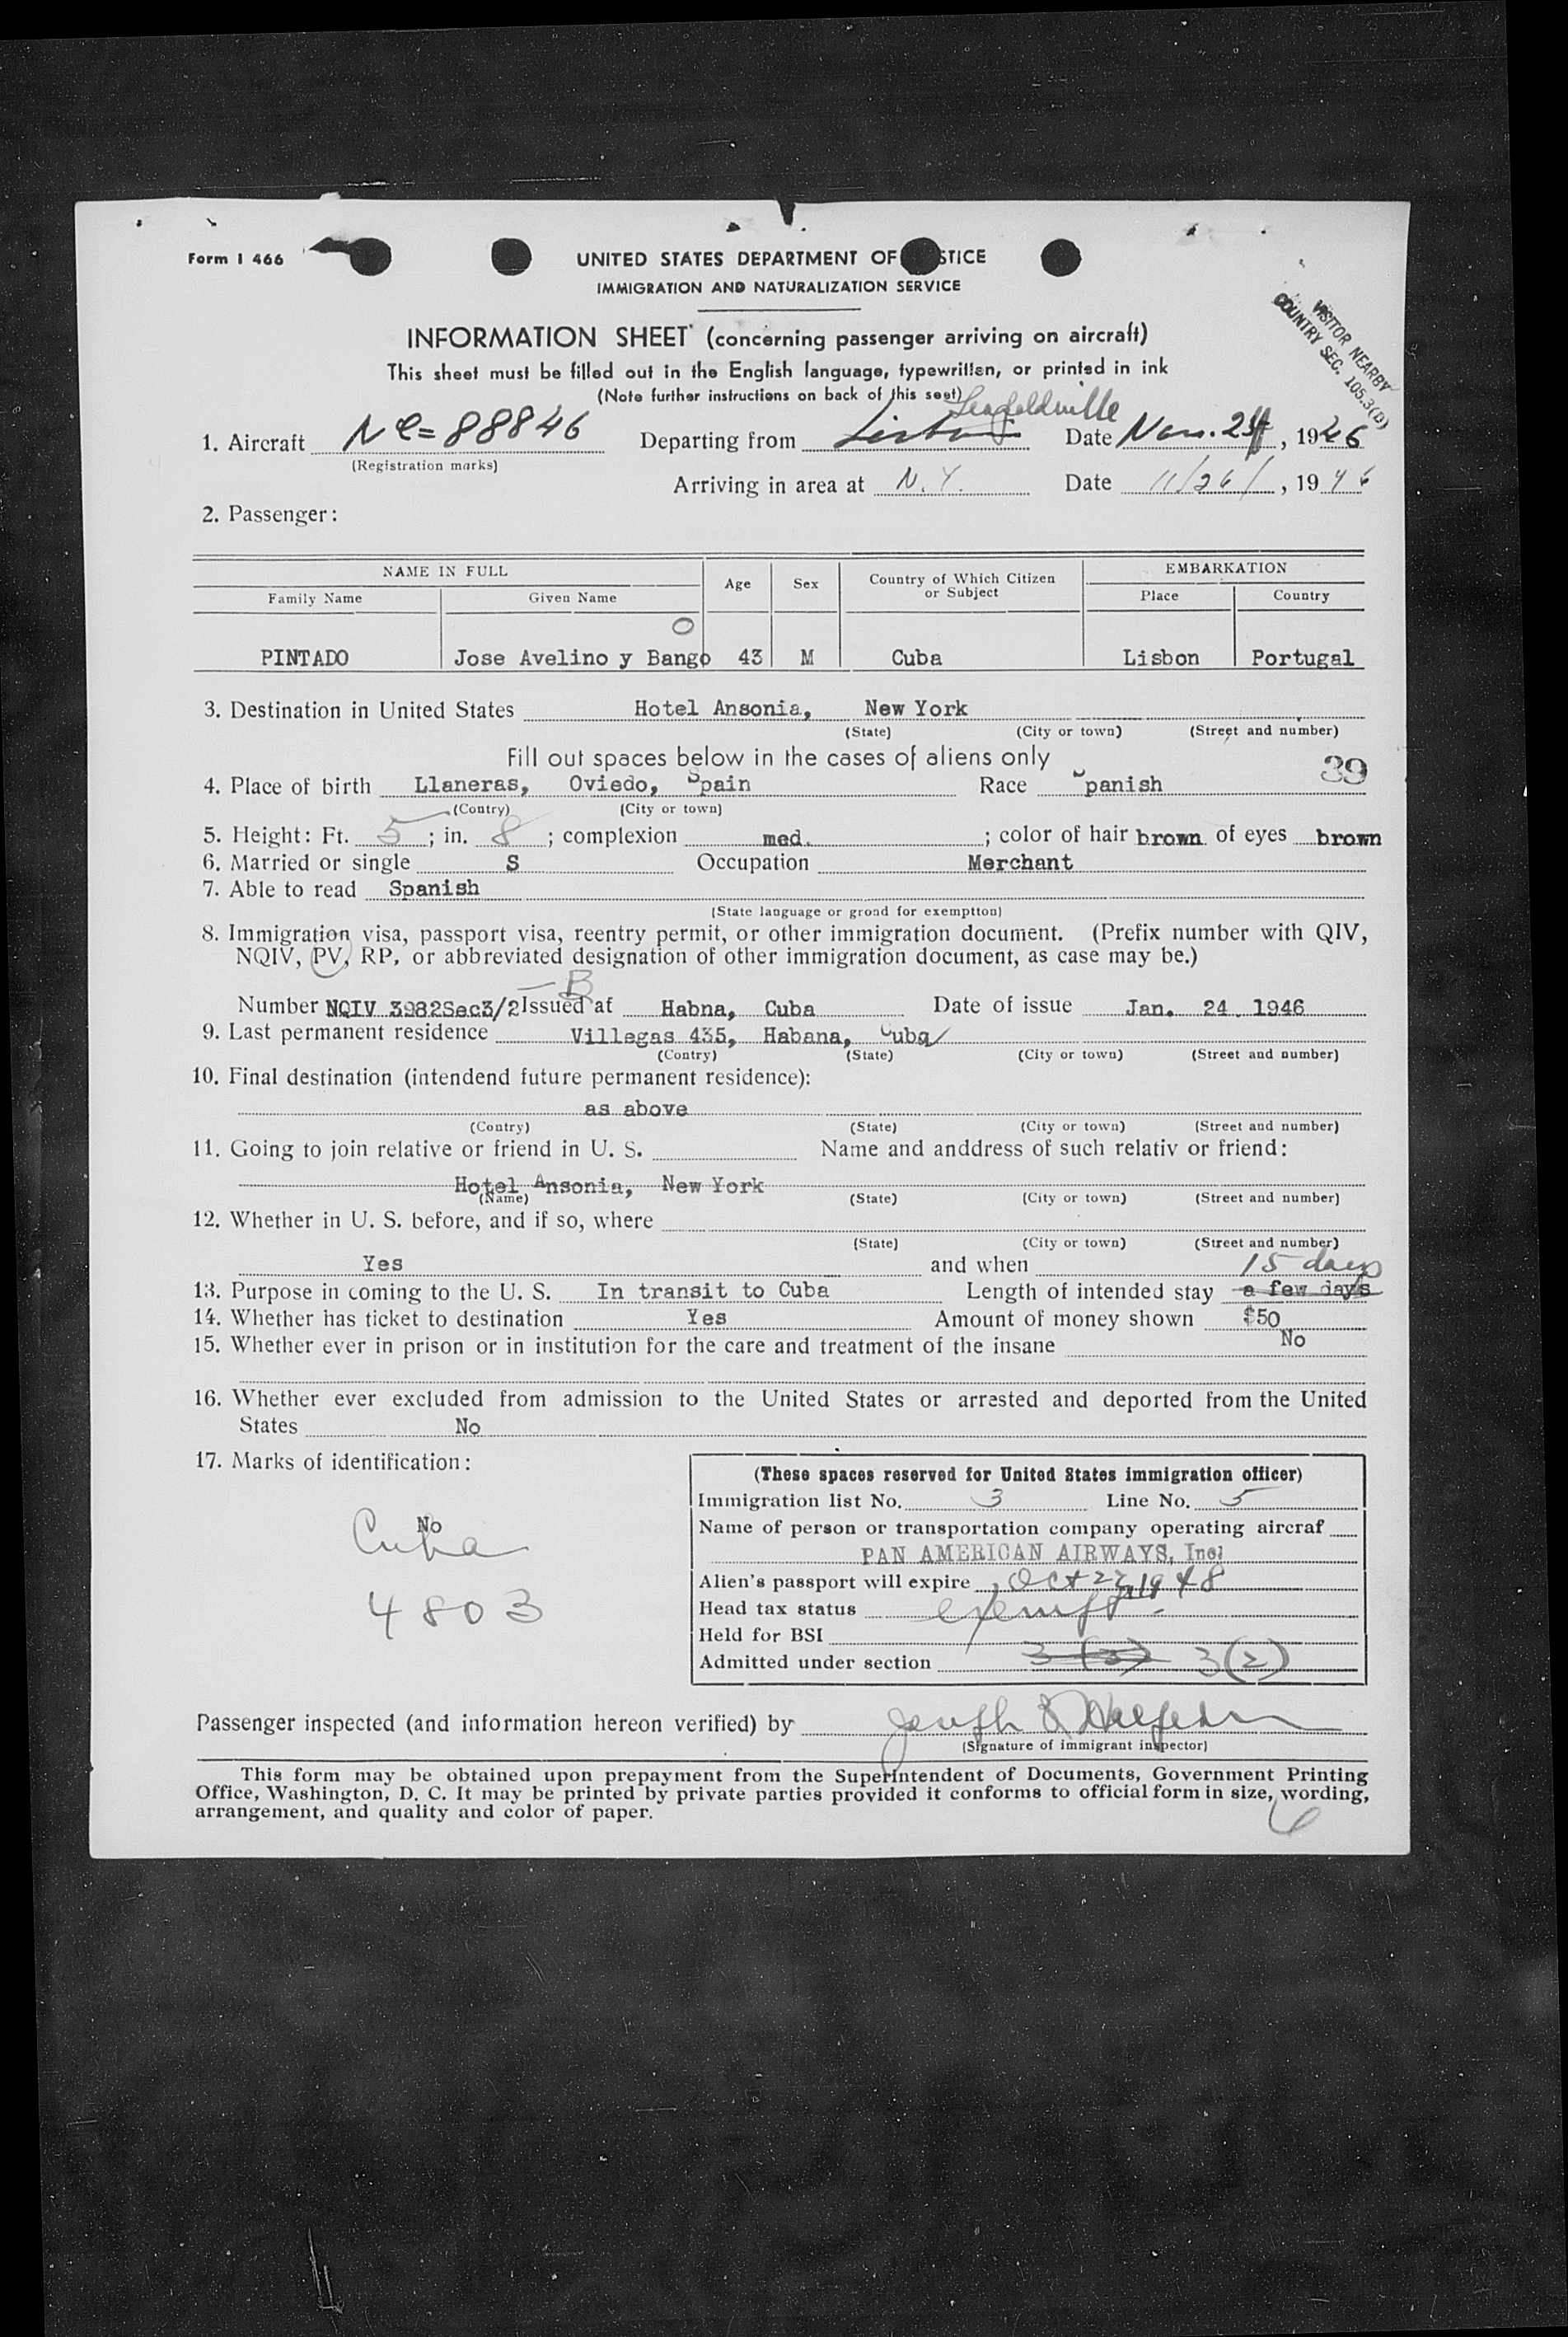 Form I 466
UNITED STATES DEPARTMENT OF STICE
IMMIGRATION AND NATURALIZATION SERVICE
VISITOR NEARBY
COUNTRY SEC. 105.3(D)
INFORMATION SHEET (concerning passenger arriving on aircraft)
This sheet must be filled out in the English language, typewritten, or printed in ink
(Note further instructions on back of this seet)
Leopoldville
1. Aircraft Nc= 88846 Departing from Lisbon Date Nov. , 1946
(Registration marks)
Arriving in area at N.Y. Date 11/26/ , 1946
2. Passenger:
NAME IN FULL Age Sex Country of Which Citizen or Subject EMBARKATION
Family Name Given Name Place Country
O
PINTADO Jose Avelino y Bango 43 M Cuba Lisbon Portugal
3. Destination in United States Hotel Ansonia, New York
(State) (City or town) (Street and number)
Fill out spaces below in the cases of aliens only
39
4. Place of birth Llaneras, Oviedo, Spain Race Spanish
(Contry) (City or town)
5. Height: Ft. 5 ; in. 8 ; complexion med. ; color of hair brown of eyes brown
6. Married or single S Occupation Merchant
7. Able to read Spanish
(State language or grond for exemptton)
8. Immigration visa, passport visa, reentry permit, or other immigration document. (Prefix number with QIV,
NQIV, PV, RP, or abbreviated designation of other immigration document, as case may be.)
-B
Number NQIV 3982Sec3/2 Issued at Habna, Cuba Date of issue Jan. 24. 1946
9. Last permanent residence Villegas 435, Habana, Cuba
(Contry) (State) (City or town) (Street and number)
10. Final destination (intendend future permanent residence):
as above
(Contry) (State) (City or town) (Street and number)
11. Going to join relative or friend in U. S. Name and anddress of such relativ or friend:
Hotel Ansonia, New York
(Name) (State) (City or town) (Street and number)
12. Whether in U. S. before, and if so, where
(State) (City or town) (Street and number)
Yes and when 15 days
13. Purpose in coming to the U. S. In transit to Cuba Length of intended stay a few days
14. Whether has ticket to destination Yes Amount of money shown $50
15. Whether ever in prison or in institution for the care and treatment of the insane No
16. Whether ever excluded from admission to the United States or arrested and deported from the United
States No
17. Marks of identification:
No
Cuba
4803
(These spaces reserved for United States immigration officer)
Immigration list No. 3 Line No. 5
Name of person or transportation company operating aircraf
PAN AMERICAN AIRWAYS, Inc.
Alien's passport will expire Oct 27, 1948
Head tax status exempt
Held for BSI
Admitted under section 3 (3) 3(2)
Passenger inspected (and information hereon verified) by Joseph
(Signature of immigrant inspector)
This form may be obtained upon prepayment from the Superintendent of Documents, Government Printing
Office, Washington, D. C. It may be printed by private parties provided it conforms to official form in size, wording,
arrangement, and quality and color of paper.
6